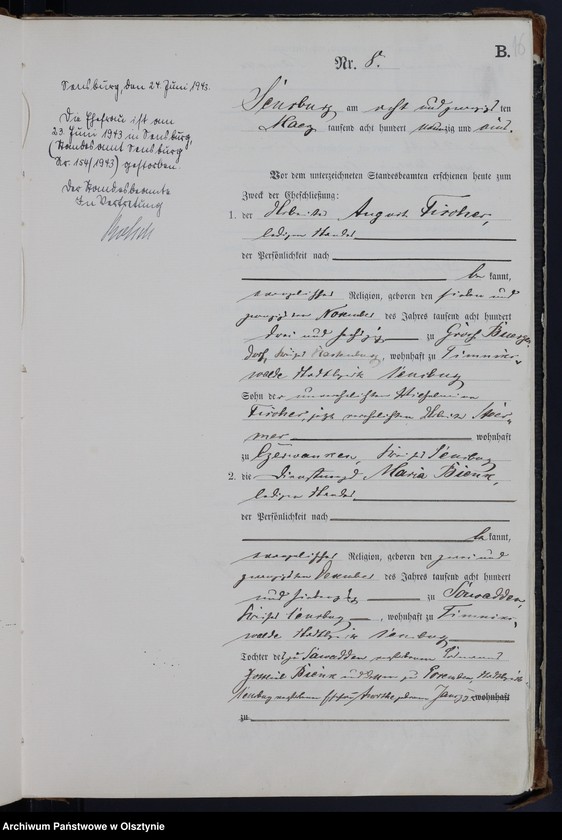 B.
Nr. 8.
Sensburg, den 24. Juni 1943.
Die Ehefrau ist am
23. Juni 1943 in Sensburg,
(Standesamt Sensburg
Nr. 154/1943) gestorben.
Der Standesbeamte
In Vertretung
Sensburg am acht und zwanzigsten
Maerz tausend acht hundert neunzig und eins.
Vor dem unterzeichneten Standesbeamten erschienen heute zum
Zweck der Eheschließung:
1. der Arbeiter August Fischer,
ledigen Standes
der Persönlichkeit nach
be kannt,
evangelischer Religion, geboren den sieben und
zwanzigsten November des Jahres tausend acht hundert
drei und sechzig zu Groß
dorf, Kreises Rastenburg, wohnhaft zu
walde Stadtbezirk Sensburg
Sohn der unverehelichten Wilhelmine
Fischer, jetzt verehelichten Arbeiter
mer wohnhaft
zu Czerwanken, Kreises Sensburg
2. die Dienstmagd Maria Bienk,
ledigen Standes
der Persönlichkeit nach
be kannt,
evangelischer Religion, geboren den zwei und
zwanzigsten Dezember des Jahres tausend acht hundert
und siebenzig zu Sawadden,
Kreises Sensburg, wohnhaft zu
walde Stadtbezirk Sensburg
Tochter des zu Sawadden verstorbenen
Bienk und dessen zu
Sensburg verstorbenen Ehefrau geborenen wohnhaft
zu
Archiwum Państwowe w Olsztynie